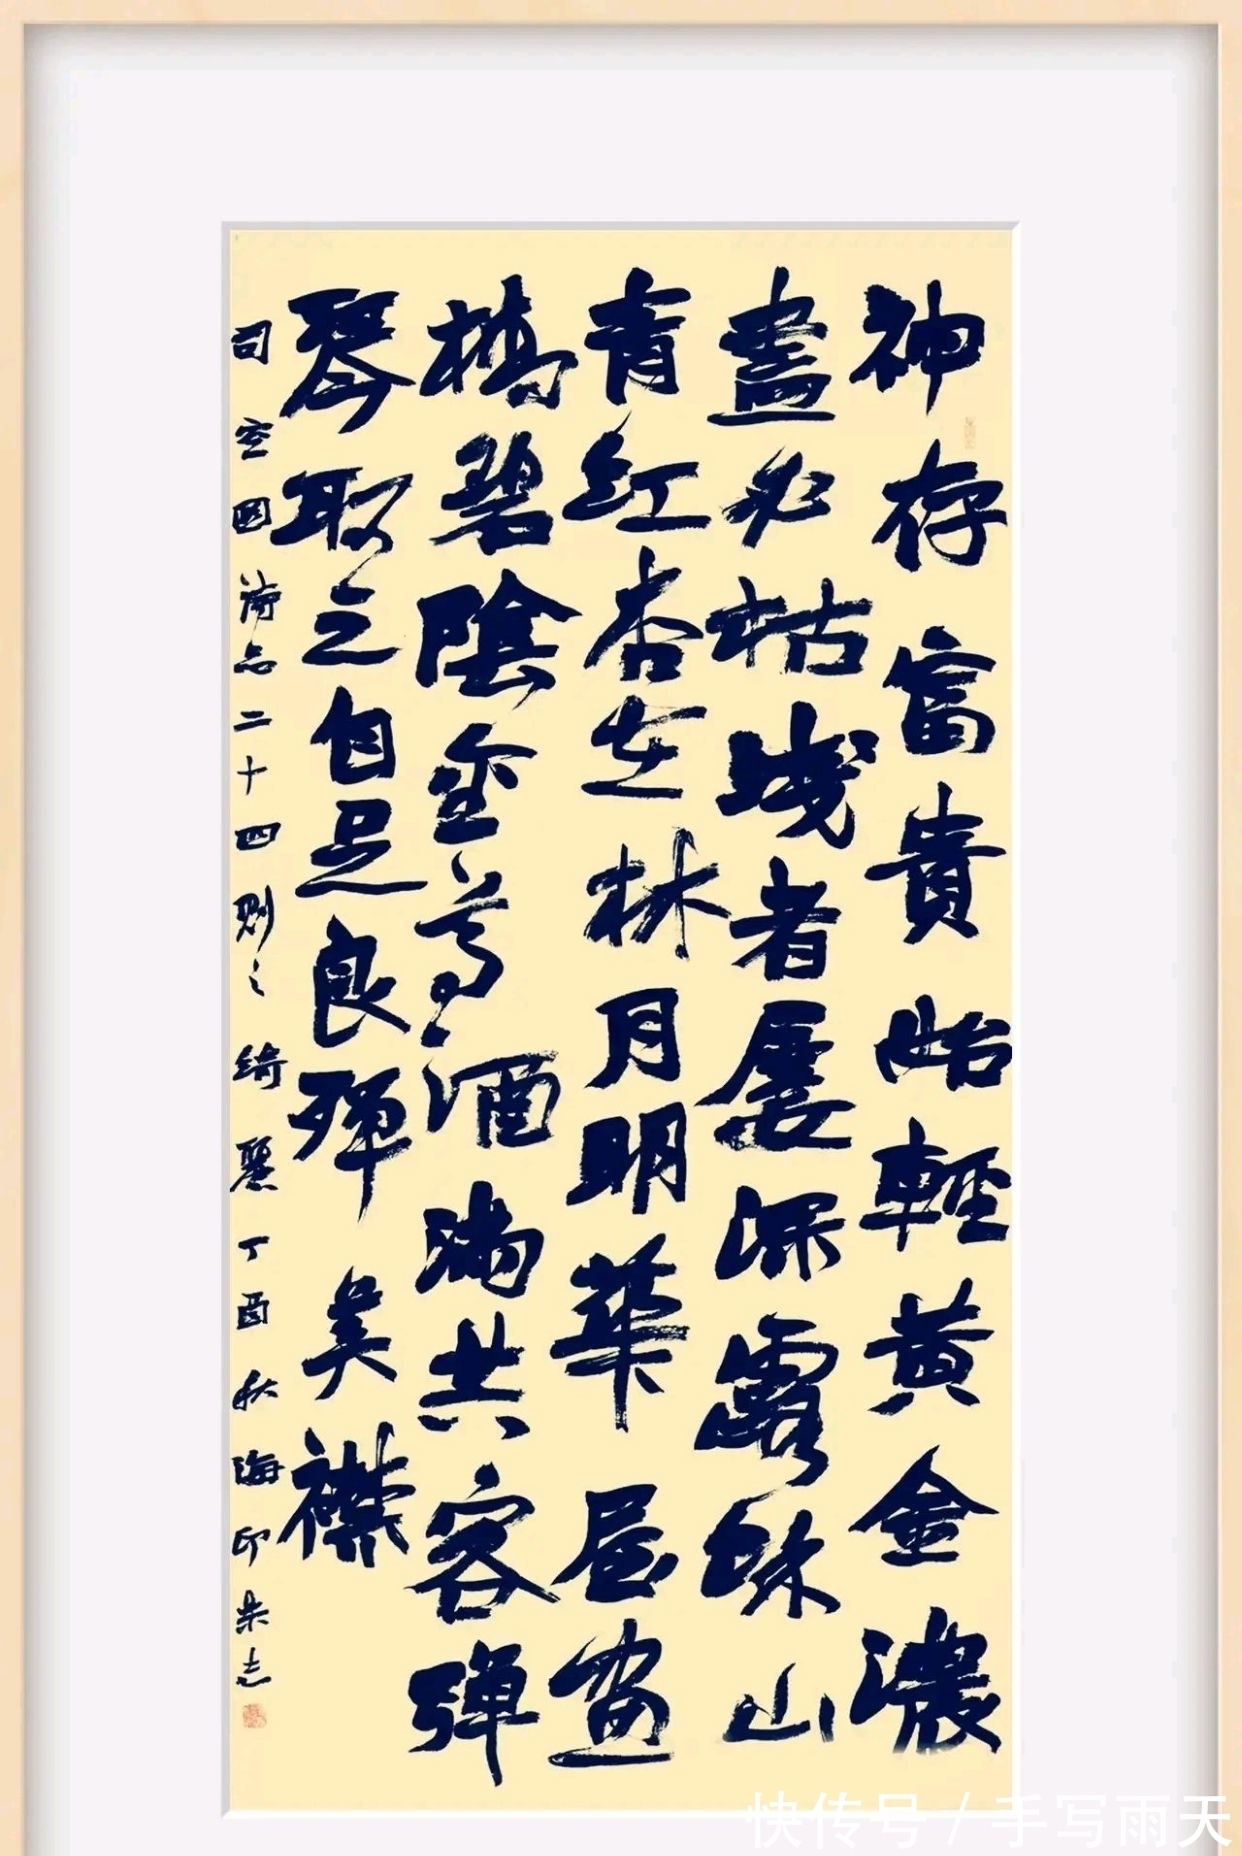 神存富貴始輕黄金濃
盡必枯淺者屢深露餘山
青紅杏在林月明華屋畫
橋碧陰金尊酒滿共客彈
琴取之自足良殫美襟
司空圖詩品二十四則之綺麗丁酉秋海印朱志
快传号 / 手写雨天